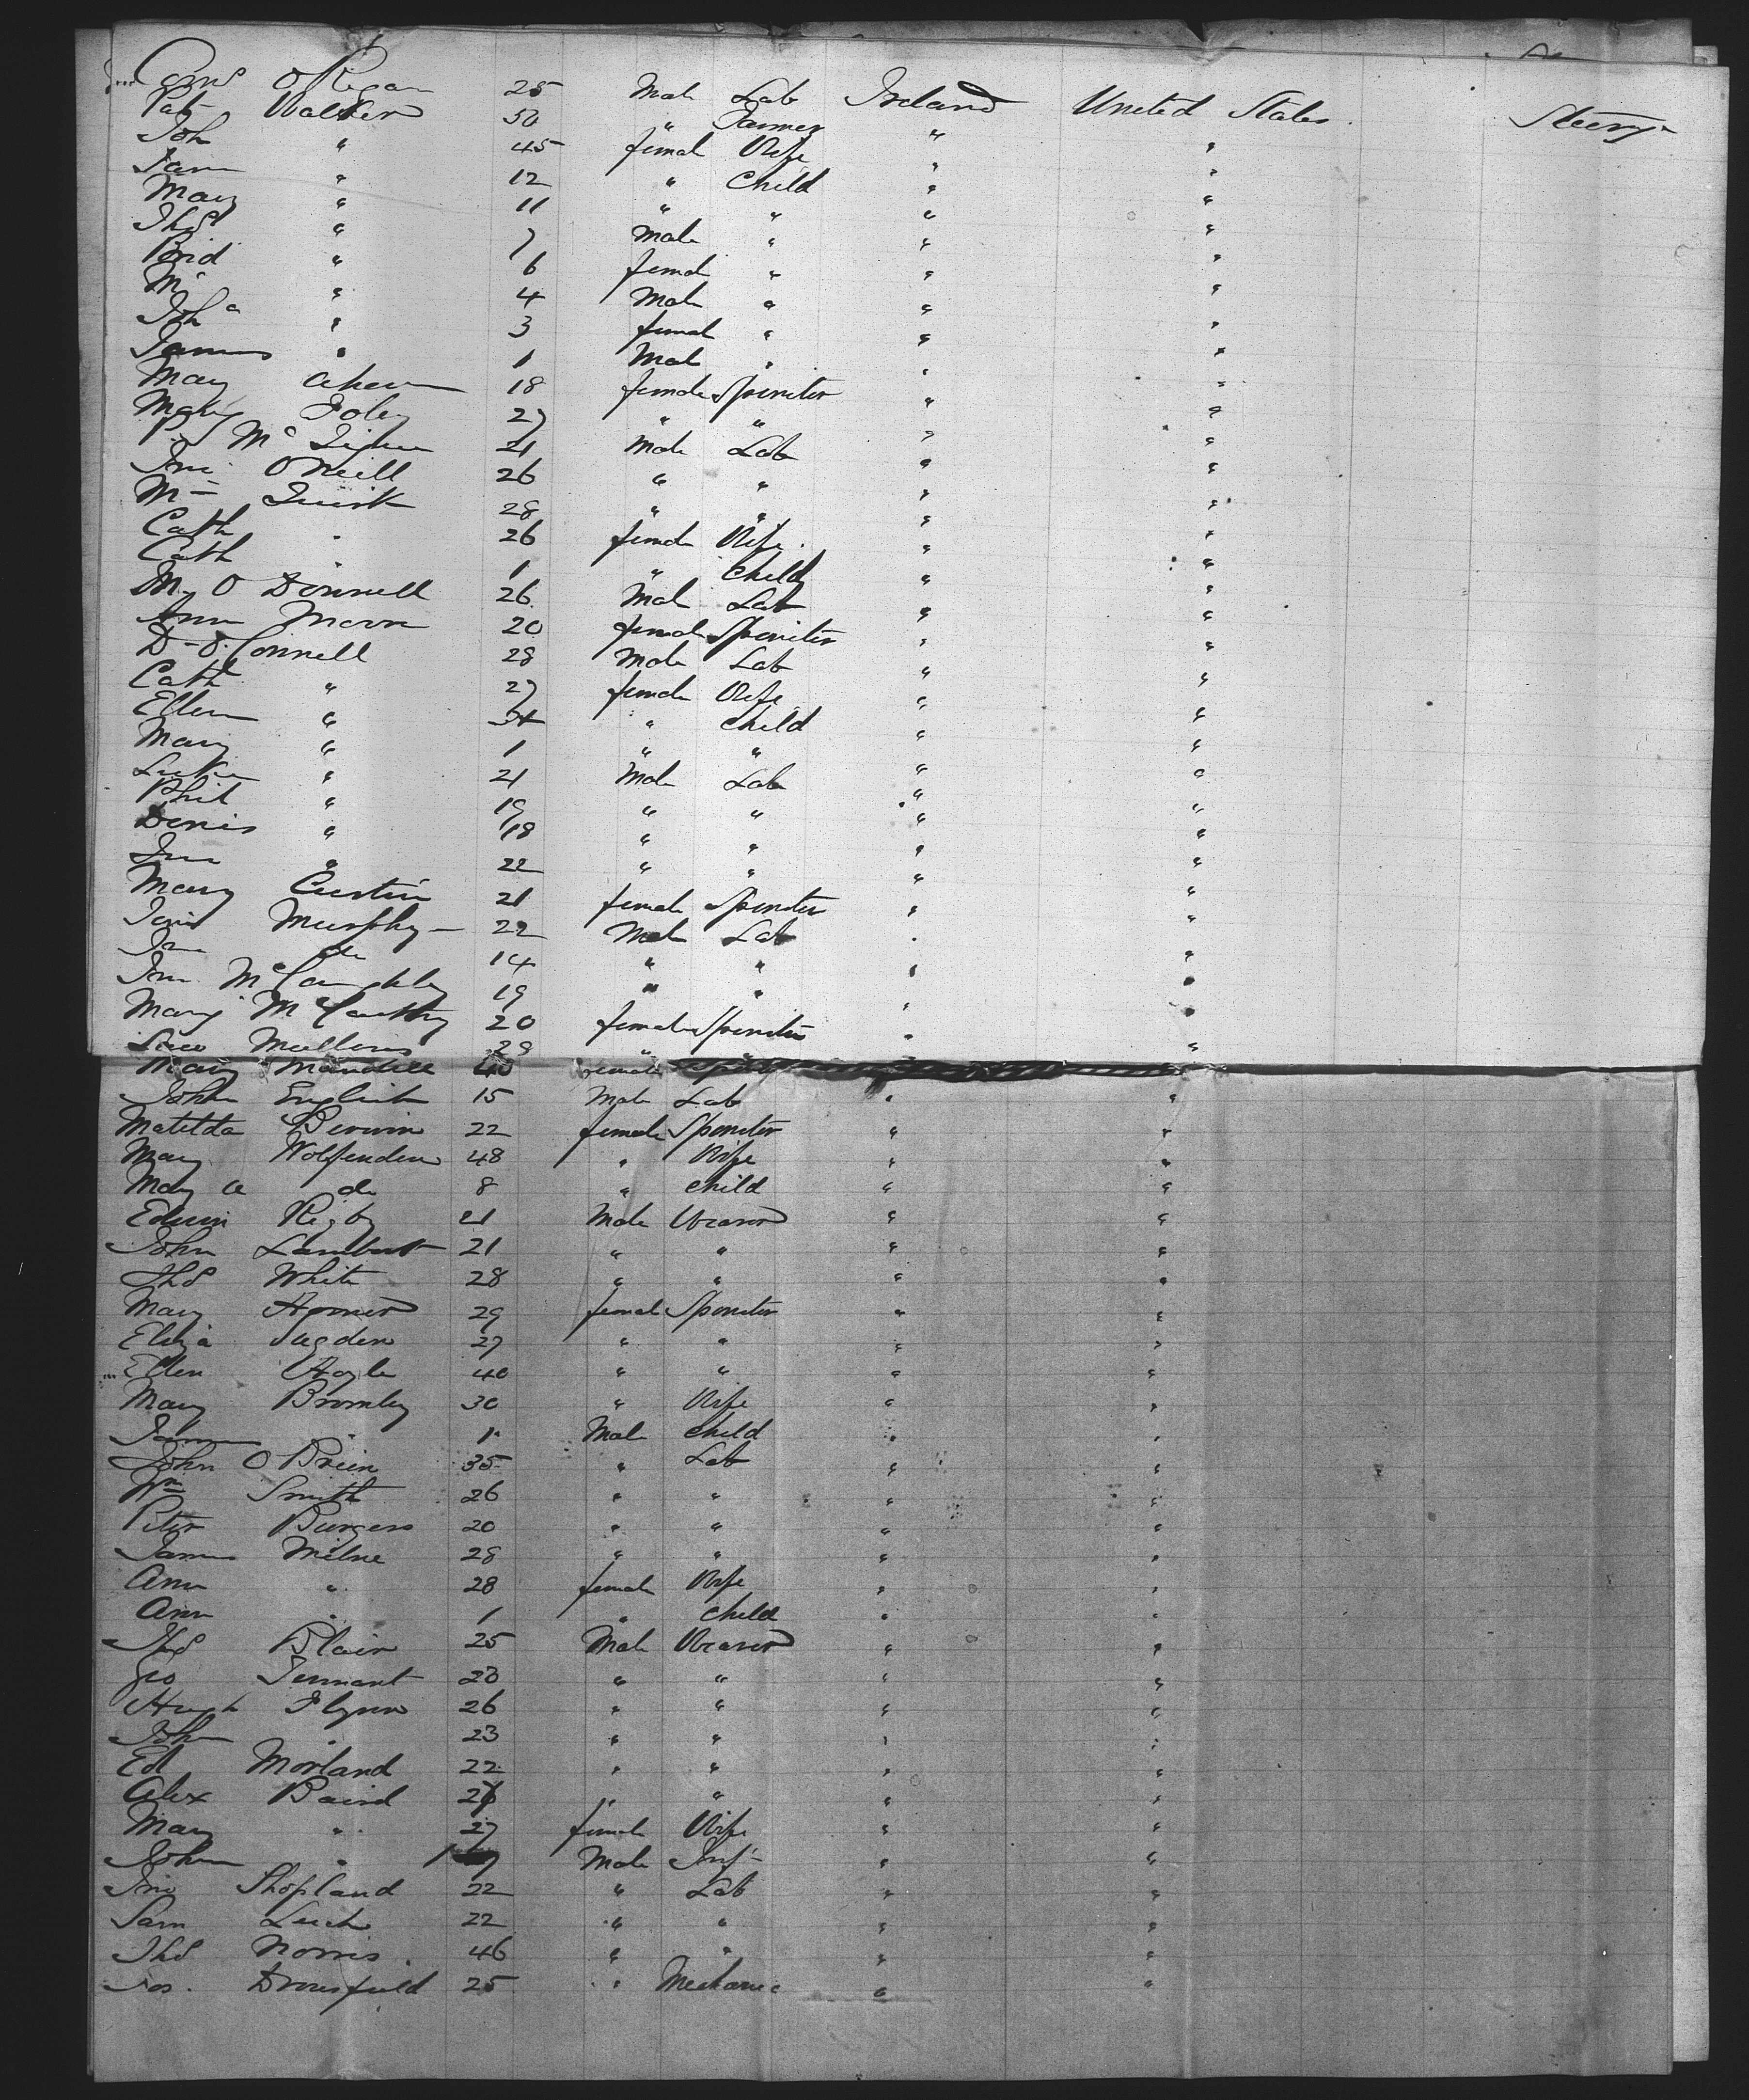 Corns O Regan 25 Male Lab Ireland United States Steerg
Pat Walker 50 " Farmer " "
Joh " 45 femal Wife " "
" 12 " Child " "
Mary " 11 " " " "
Thos " 7 Male " " "
Brid " 6 femal " " "
M " 4 Male " " "
Joha " 3 femal " " "
James " 1 Male " " "
Mary Ahern 18 female Spinster " "
Mary Foley 27 " " " "
P Mc 21 Male Lab " "
Jno O Neill 26 " " " "
M Quirk 28 " " " "
Cath " 26 female Wife " "
Cath " 1 " Child " "
M. O Donnell 26 Male Lab " "
Ann Moore 20 female Spinster " "
D - O. Connell 28 Male Lab " "
Cath " 27 female Wife " "
Ellen " " Child " "
Mary " 1 " " " "
Luke " 21 Male Lab " "
Phil " 19 " " " "
Denis " 18 " " " "
Jno " 22 " " " "
Mary Curtin 21 female Spinster " "
Murphy 22 Male Lab " "
do 14 " " " "
Jno 19 " " " "
Mary McCarthy 20 female Spinster " "
Mullins 28
Mary female
John English 15 Male Lab " "
Matilda 22 female Spinster " "
Mary Wolfenden 48 " Wife " "
Mary A do 8 " Child " "
Edwin Rigby 21 Male Weaver " "
John Lambert 21 " " " "
Thos White 28 " " " "
Mary 29 female Spinster " "
Eliza Sugden 27 " " " "
Ellen Hoyle 40 " " " "
Mary Bromley 30 " Wife " "
James " 1 Male Child " "
John O Brien 35 " Lab " "
Wm Smith 26 " " " "
Peter Burgess 20 " " " "
James Milne 28 " " " "
Ann " 28 female Wife " "
Ann " 1 " Child " "
Thos Blair 25 Male Weaver " "
Geo Tennant 20 " " " "
Hugh Flynn 26 " " " "
John " 23 " " " "
Ed Morland 22 " " " "
Alex Baird " " " "
Mary " 27 female Wife " "
John " Male Inft " "
Jno Shopland 22 " Lab " "
Sam Leech 22 " " " "
Thos Norris 46 " " " "
Jos. Dronsfield 25 " Mechanic " "